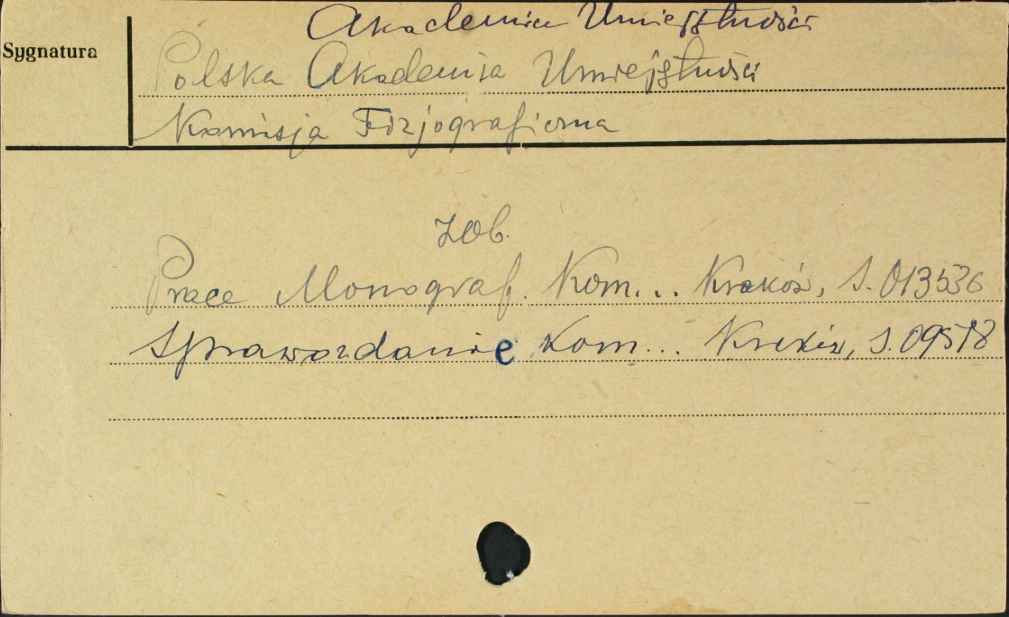 Akademia Umiejętności
Sygnatura
Polska Akademia Umiejętności
Komisja Fizjograficzna
zob.
Prace Monograf. Kom... Kraków, S. 013536
Sprawozdanie Kom... Kraków, S. 09578